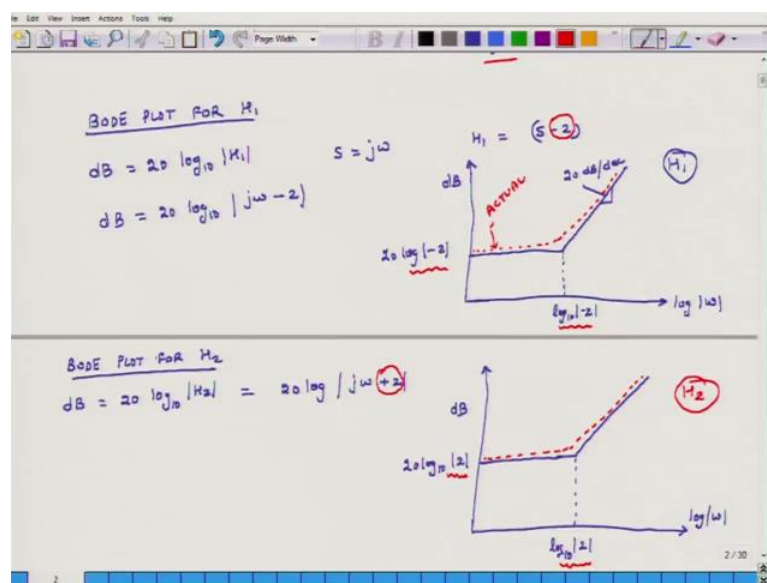 Edit View Insert Actions Tools Help
Page Width
BODE PLOT FOR H₁
dB = 20 log₁₀ |H₁|
S = jω
dB = 20 log₁₀ | jω - 2 |
H₁ = (S - 2)
H₁
dB
ACTUAL
20 dB/dec
20 log |-2|
log₁₀|-2|
log |ω|
BODE PLOT FOR H₂
dB = 20 log₁₀ |H₂| = 20 log | jω + 2 |
H₂
dB
20 log₁₀ |2|
log₁₀|2|
log |ω|
2 / 30
2